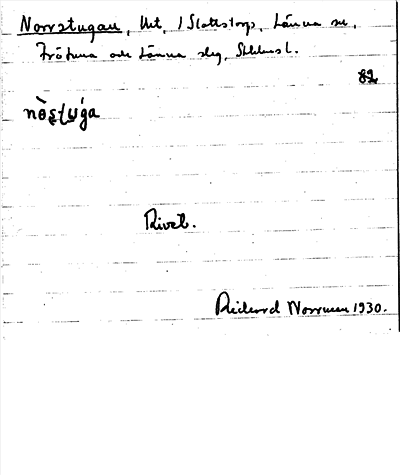 Norrstugan, Hut, i Slottstorp, Länna sn,
Frötuna och Länna slg, Sthlms l.
82
nò̀ṣṭúga
Rivet.
Rickard Norrman 1930.